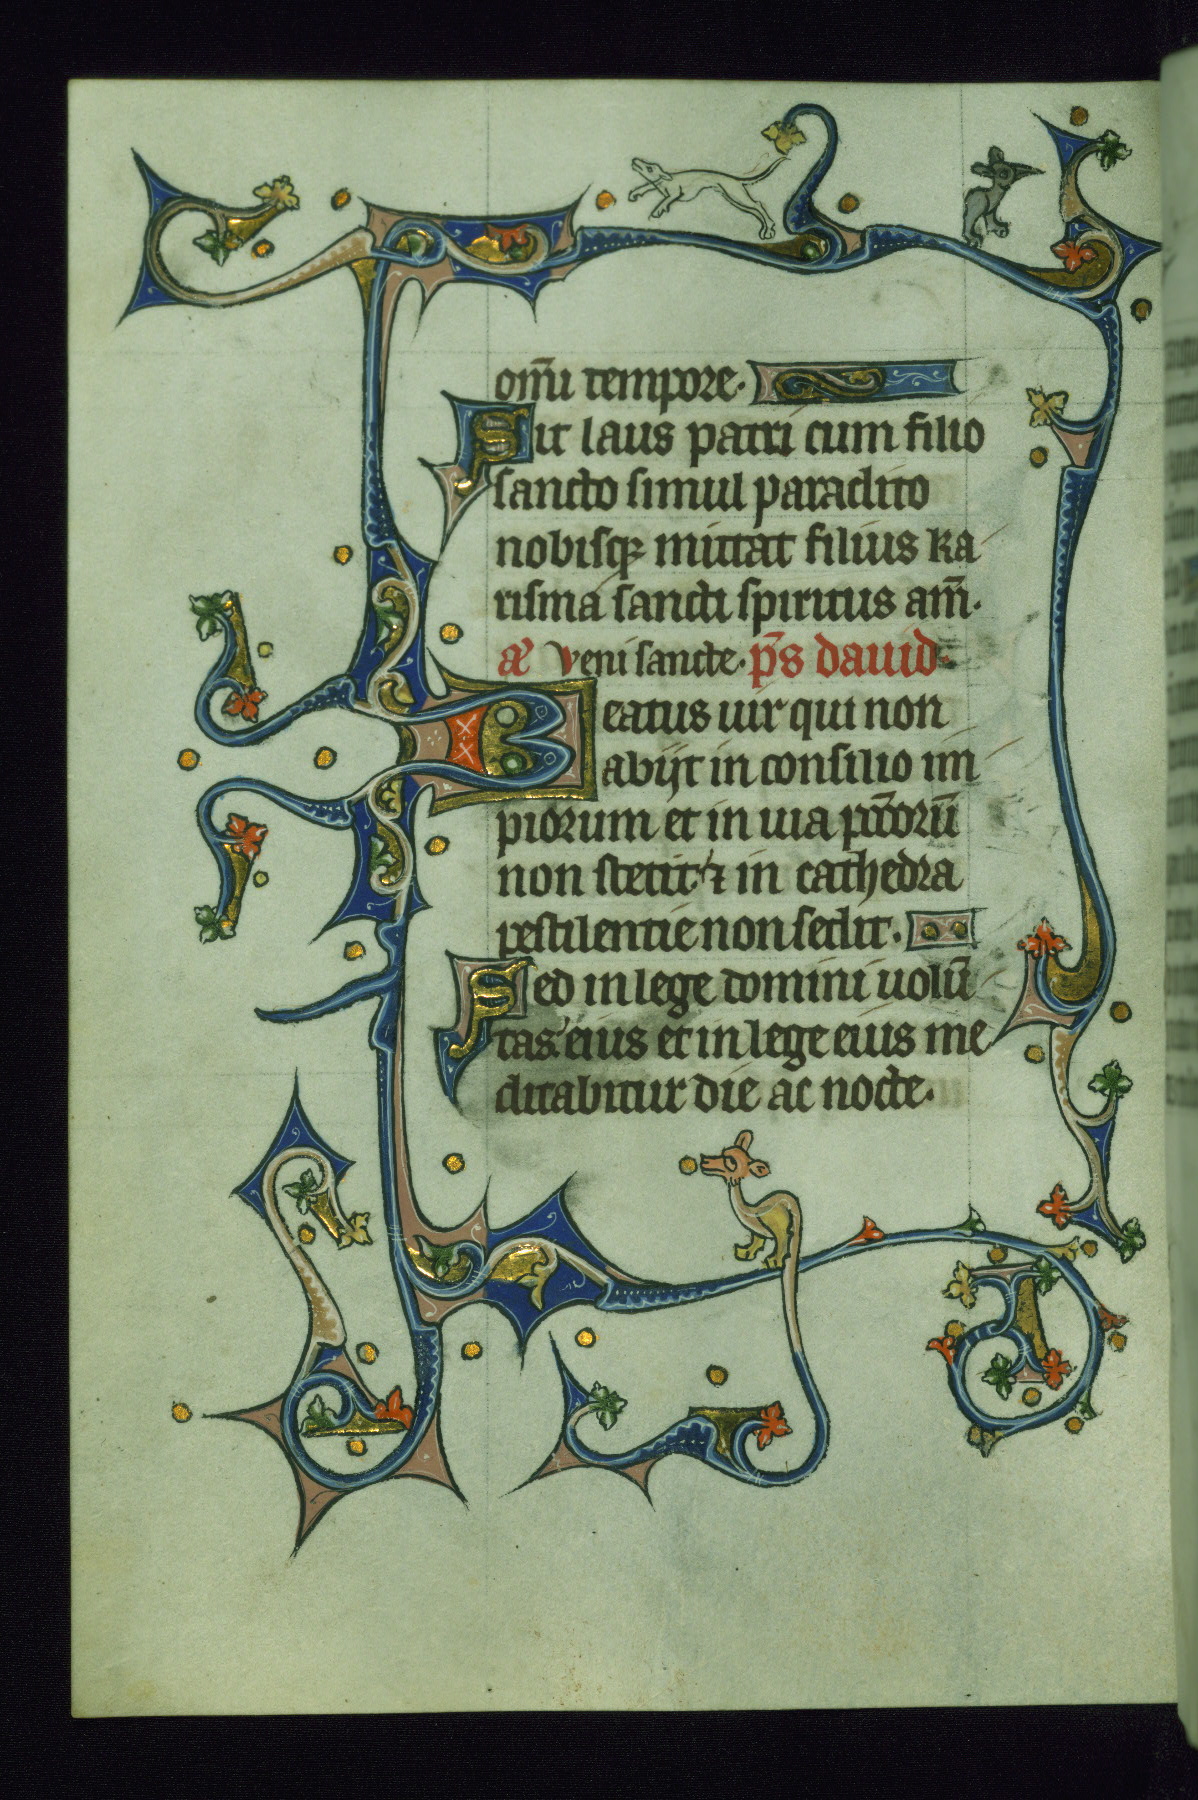 om̄i tempore.
Sit laus patri cum filio
sancto simul paraclito
nobisqꝫ mittat filius ka
risma sancti spiritus am̄.
a᷎ Veni sancte. p̄s dauid.
Beatus uir qui non
abijt in consilio im
piorum et in uia pc̄corū
non stetit: ⁊ in cathedra
pestilentie non sedit.
Sed in lege domini uolū
tas eius et in lege eius me
ditabitur die ac nocte.